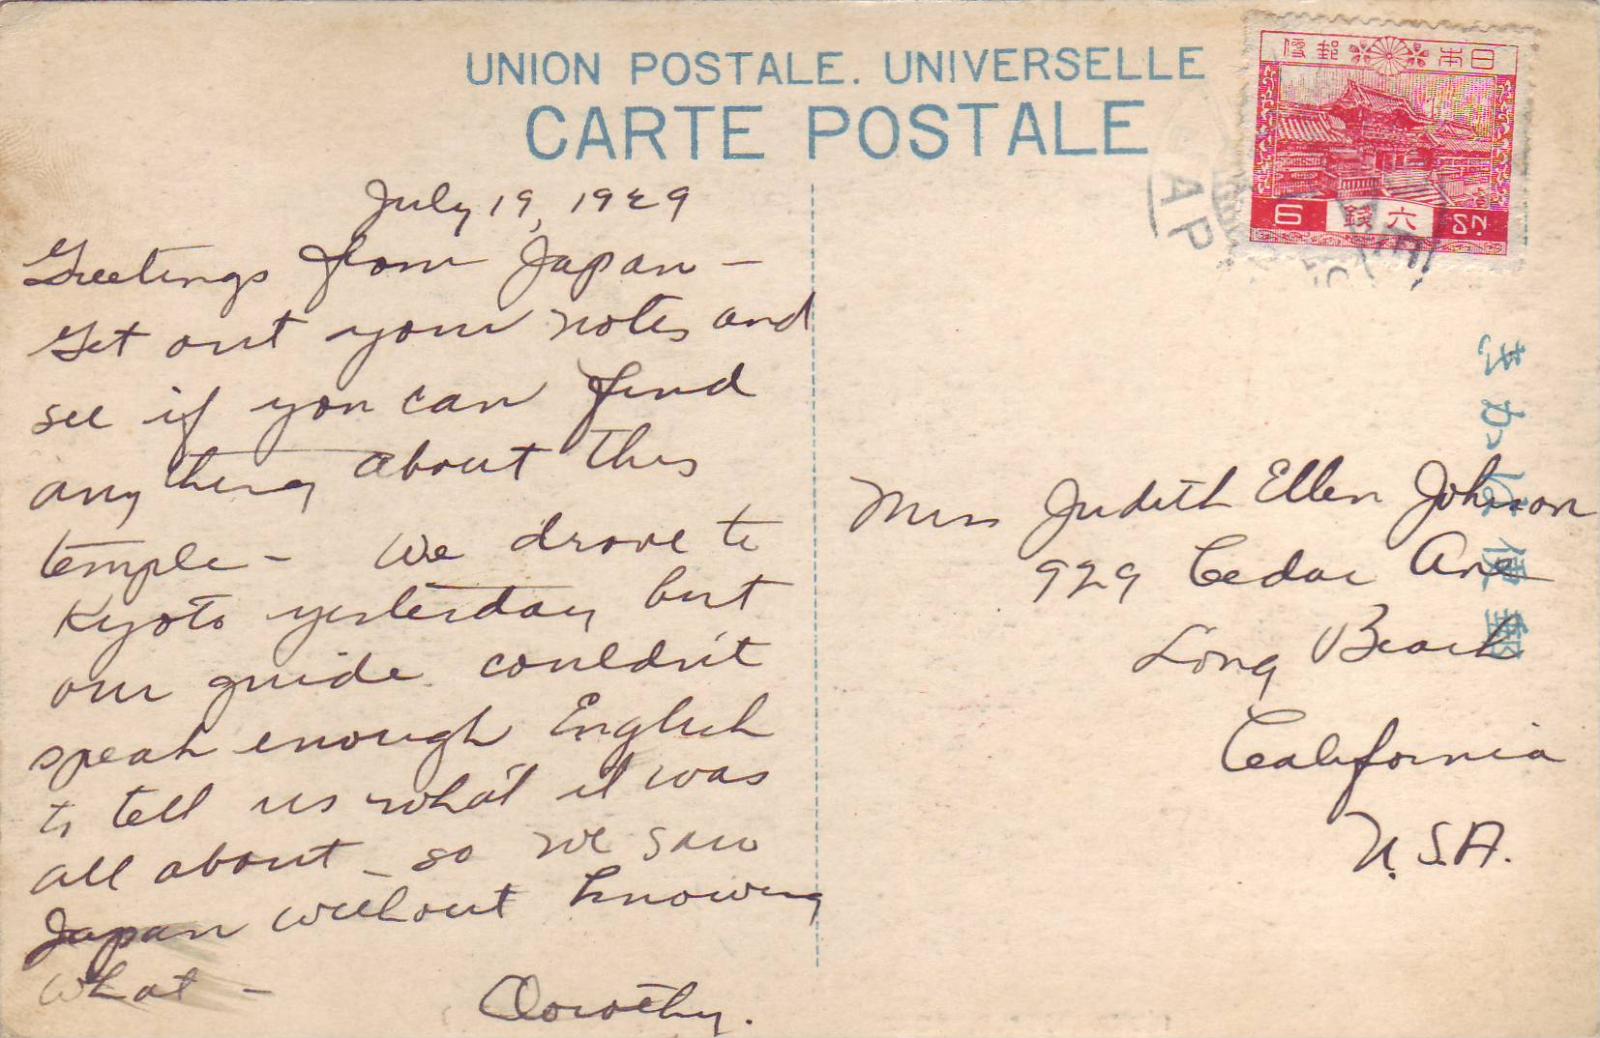 UNION POSTALE. UNIVERSELLE
CARTE POSTALE
便郵本日
6 錢六 SN.
JAP
きかは便郵
July 19, 1929
Greetings from Japan –
Get out your notes and
see if you can find
anything about this
temple – We drove to
Kyoto yesterday but
our guide couldn't
speak enough English
to tell us what it was
all about – so we saw
Japan without knowing
what –
Dorothy.
Miss Judith Ellen Johnson
929 Cedar Ave
Long Beach
California
U.S.A.